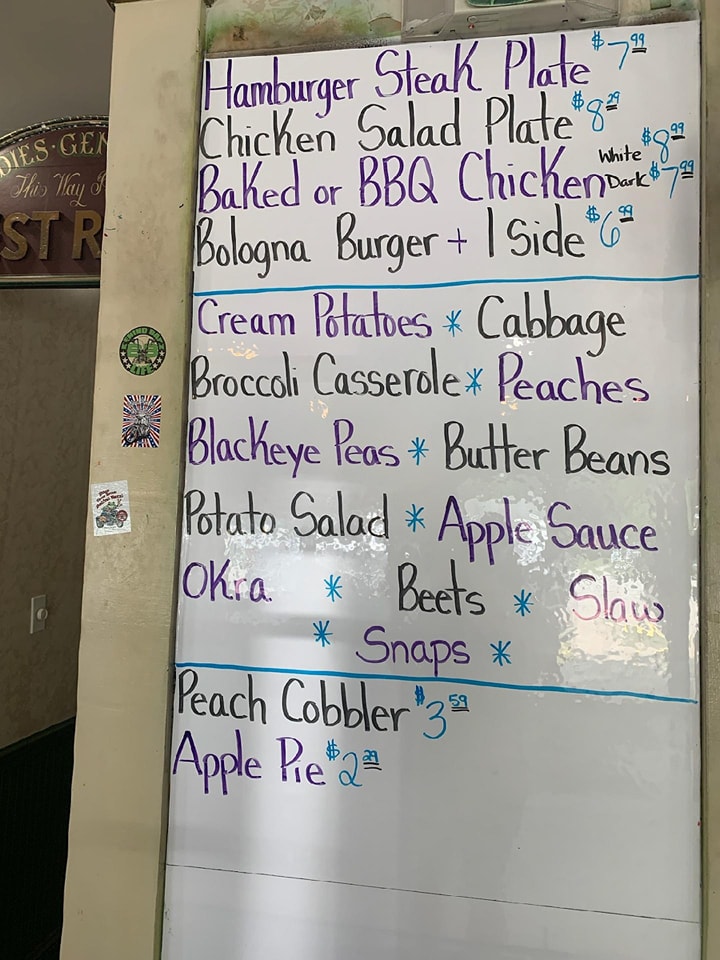 Hamburger Steak Plate $7.99
Chicken Salad Plate $8.29
Baked or BBQ Chicken White $8.99
Dark $7.99
Bologna Burger + 1 Side $6.99
Cream Potatoes * Cabbage
Broccoli Casserole * Peaches
Blackeye Peas * Butter Beans
Potato Salad * Apple Sauce
Okra * Beets * Slaw
* Snaps *
Peach Cobbler $3.59
Apple Pie $2.29
DIES·GEN
This Way
ST R